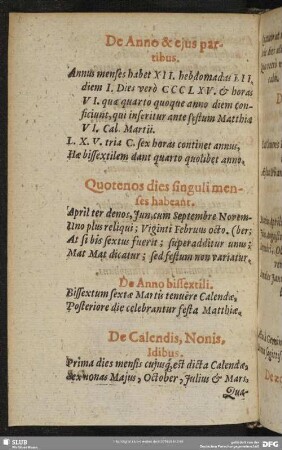 De Anno & ejus par-
tibus.
Annus menses habet XII. hebdomadas LII.
diem I. Dies verò CCCLXV. & horas
VI. quæ quarto quoque anno diem con-
ficiunt, qui inseritur ante festum Matthiæ
VI. Cal. Martii.
L. X. V. tria C. sex horas continet annus,
Hæ bissextilem dant quarto quolibet anno.
Quotenos dies singuli men-
ses habeant.
April ter denos, Jun, cum Septembre Novem-
Uno plus reliqui; Viginti Februm octo. (ber;
At si bis sextus fuerit; superadditur unus;
Mat Mat dicatur; sed festum non variatur.
De Anno bissextili.
Bissextum sextæ Martis tenuère Calendæ,
Posteriore die celebrantur festa Matthiæ.
De Calendis, Nonis,
Idibus.
Prima dies mensis cujusq; est dicta Calendæ,
Sex nonas Majus, October, Julius & Mars.
Qua-
SLUB
DFG